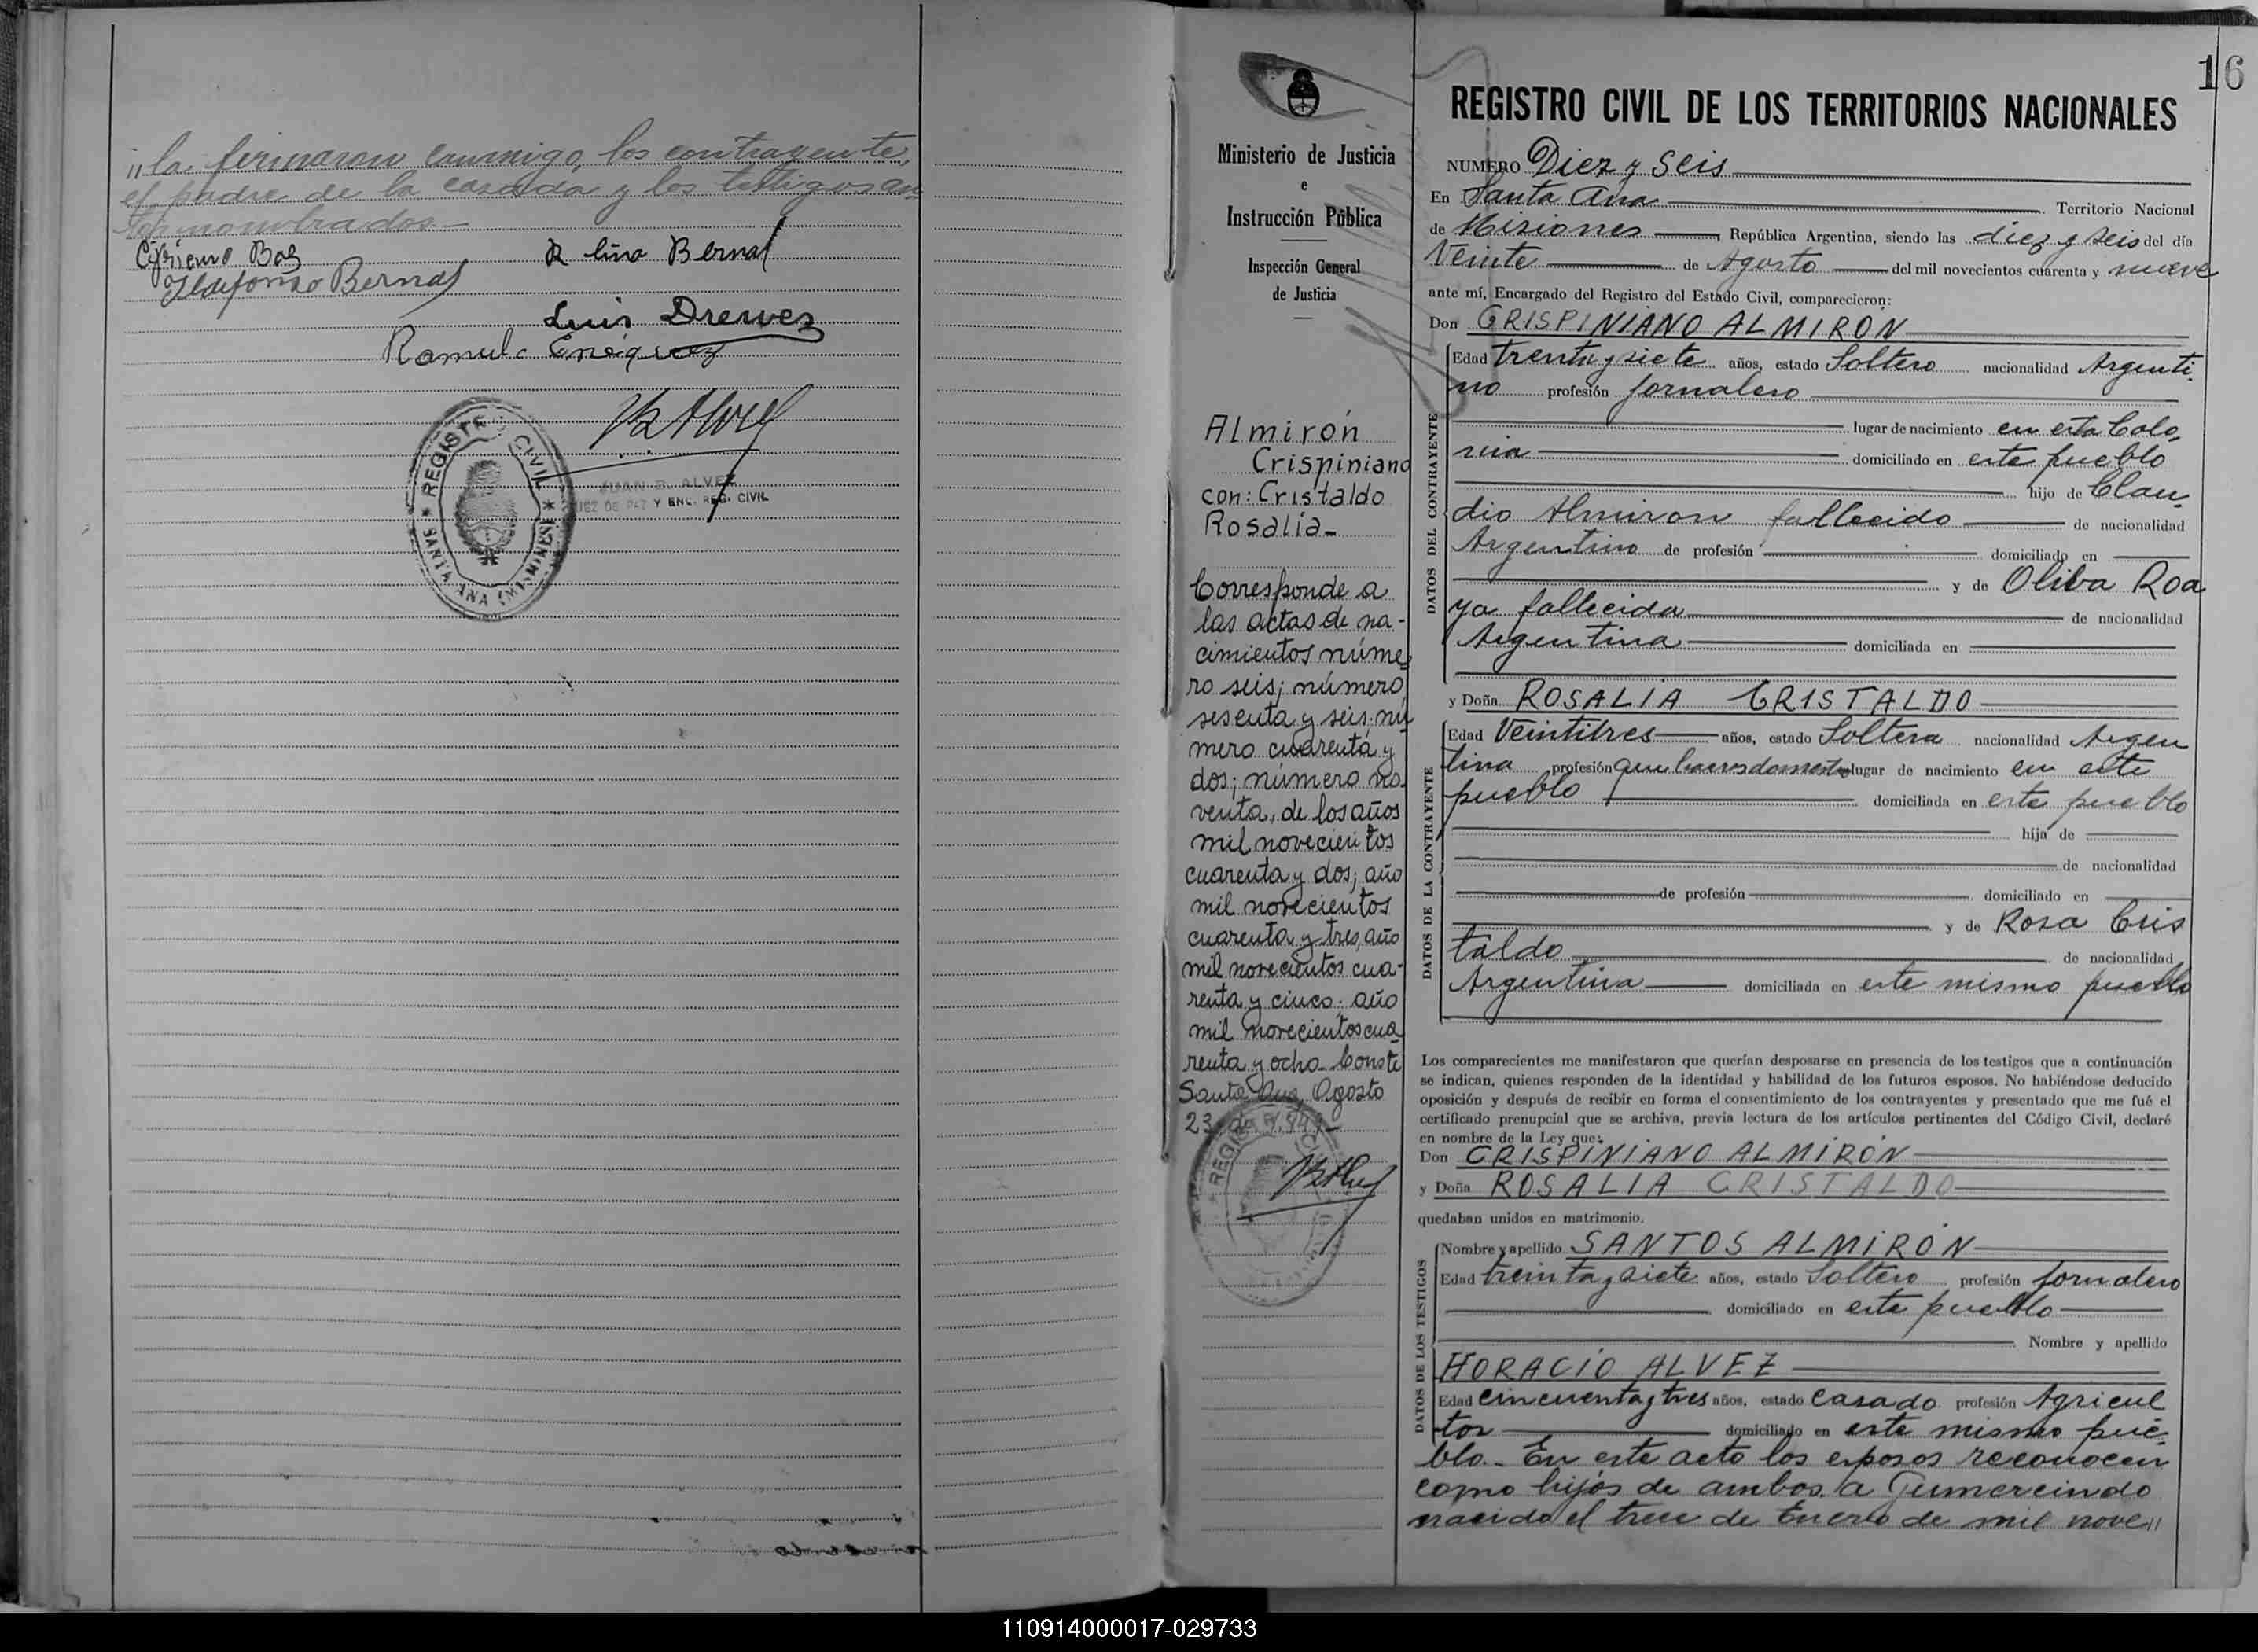 „la firmaron conmigo, los contrayente,
el padre de la casada y los testigos an
tes nombrados.—
Cipriano Baez
R lina Bernal
Ildefonso Bernal
Luis Drewes
Romulo Enéquez
REGISTRO CIVIL
SANTA ANA (MISIONES)
JUAN B. ALVEZ
JUEZ DE PAZ Y ENC. REG. CIVIL
Ministerio de Justicia
e
Instrucción Pública
Inspección General
de Justicia
Almirón
Crispiniano
con: Cristaldo
Rosalía-
Corresponde a
las actas de na-
cimientos núme-
ro seis; número
sesenta y seis; nú
mero cuarenta y
dos; número no-
venta, de los años
mil novecientos
cuarenta y dos; año
mil novecientos
cuarenta y tres, año
mil novecientos cua-
renta y cinco; año
mil novecientos cua-
renta y ocho- Conste
Santa Ana, Agosto
23
16
REGISTRO CIVIL DE LOS TERRITORIOS NACIONALES
NUMERO Diez y seis
En Santa Ana Territorio Nacional
de Misiones, República Argentina, siendo las diez y seis del día
Veinte de Agosto del mil novecientos cuarenta y nueve
ante mí, Encargado del Registro del Estado Civil, comparecieron:
Don CRISPINIANO ALMIRÓN
DATOS DEL CONTRAYENTE
Edad trenta y siete años, estado Soltero nacionalidad Argenti-
no profesión jornalero
lugar de nacimiento en esta Colo,
nia domiciliado en este pueblo
hijo de Clau-
dio Almiron fallecido de nacionalidad
Argentino de profesión domiciliado en
y de Oliva Roa
ya fallecida de nacionalidad
Argentina domiciliada en
y Doña ROSALIA CRISTALDO
DATOS DE LA CONTRAYENTE
Edad Veintitres años, estado Soltera nacionalidad Argen
tina profesión lugar de nacimiento en este
pueblo domiciliada en este pueblo
hija de
de nacionalidad
de profesión domiciliado en
y de Rosa Cris
taldo de nacionalidad
Argentina domiciliada en este mismo pueblo
Los comparecientes me manifestaron que querían desposarse en presencia de los testigos que a continuación
se indican, quienes responden de la identidad y habilidad de los futuros esposos. No habiéndose deducido
oposición y después de recibir en forma el consentimiento de los contrayentes y presentado que me fué el
certificado prenupcial que se archiva, previa lectura de los artículos pertinentes del Código Civil, declaré
en nombre de la Ley que:
Don CRISPINIANO ALMIRÓN
y Doña ROSALIA CRISTALDO
quedaban unidos en matrimonio.
DATOS DE LOS TESTIGOS
Nombre y apellido SANTOS ALMIRÓN
Edad treinta y siete años, estado Soltero profesión jornalero
domiciliado en este pueblo
Nombre y apellido
HORACIO ALVEZ
Edad cincuenta y tres años, estado casado profesión Agricul
tor domiciliado en este mismo pue-
blo.- En este acto los esposos reconocen
como hijos de ambos a Gumercindo
nacido el trece de Enero de mil nove„
110914000017-029733